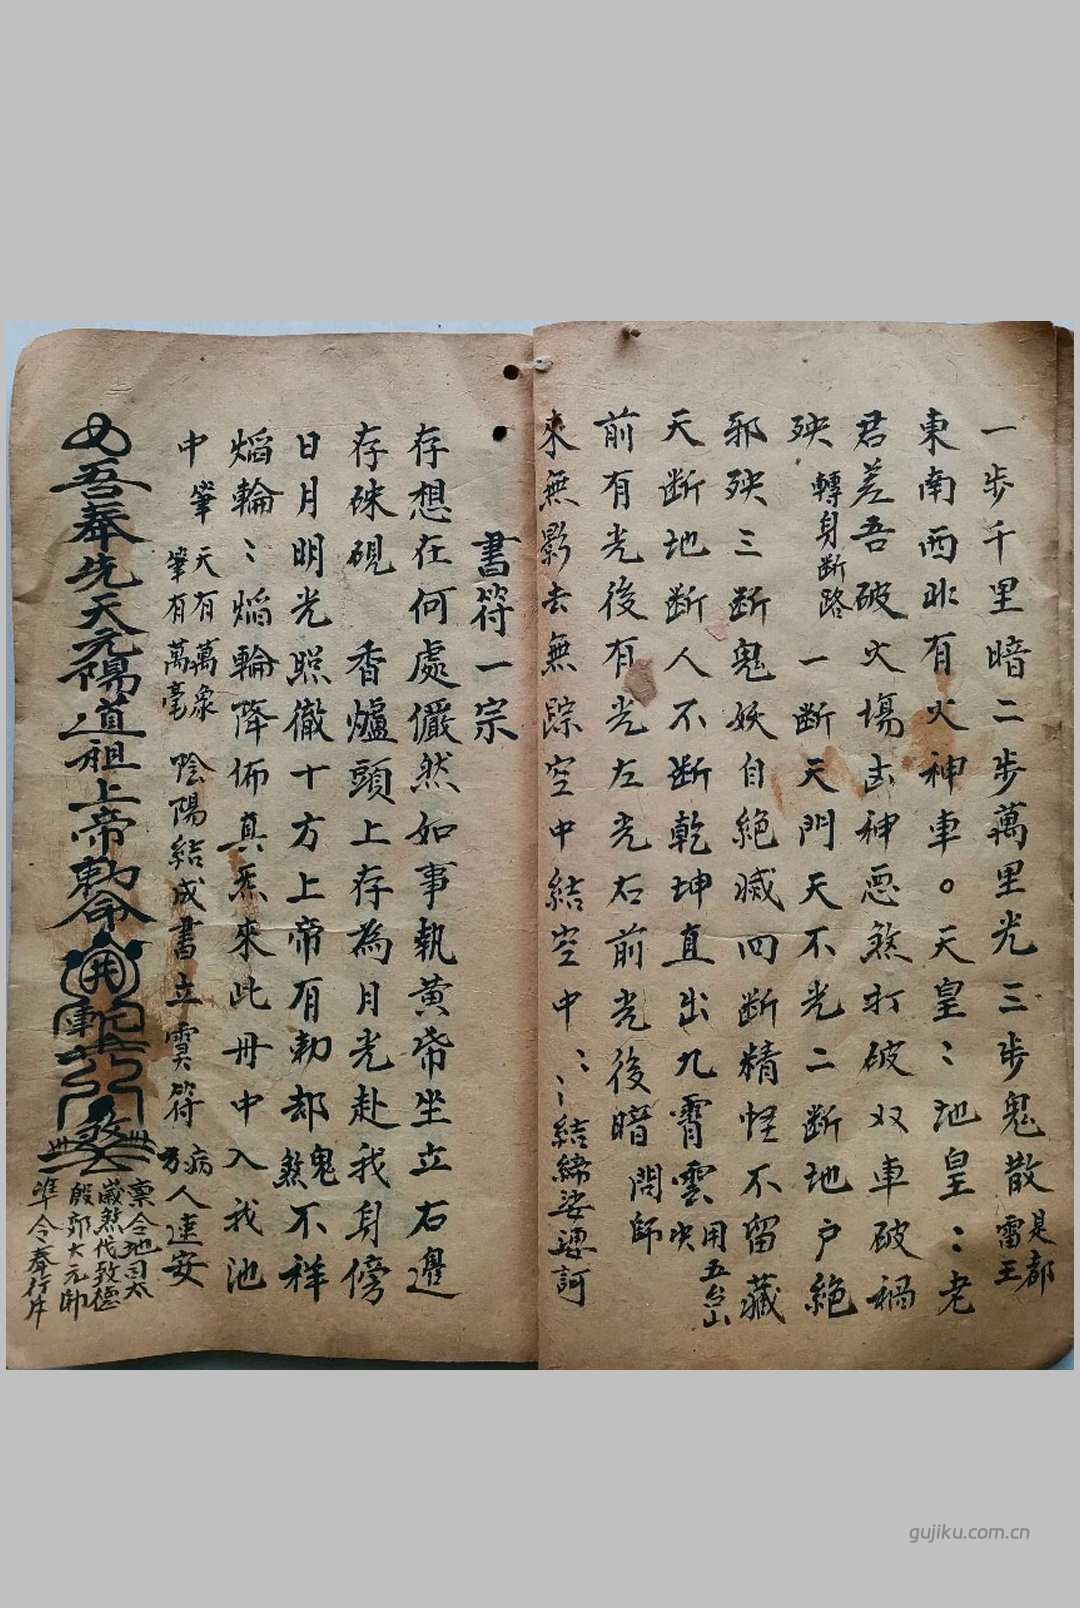 一步千里暗二步萬里光三步鬼散是都雷王
東南西北有火神車。天皇〻地皇〻老
君差吾破火場出神惡煞打破双車破禍
殃轉身断路一断天門天不光二断地户絕
邪殃三断鬼妖自絕滅四断精怪不留藏
天断地断人不断乾坤直出九霄雲決用五台山
前有光後有光左光右前光後暗問師
來無影去無踪空中結空中〻〻結締娑婆訶
書符一宗
存想在何處儼然如事執黄帝坐立右邊
存硃硯香爐頭上存為月光赴我身傍
日月明光照徹十方上帝有勅却鬼煞不祥
焰輪〻焰輪降佈真炁來此丹中入我池
中筆天有萬象筆有萬毫陰陽結成書立霛符病人達安
吾奉先天元陽道祖上帝勅命
煞
稟令地司太
歲煞伐致德
殷郊大元帥
準令奉行
gujiku.com.cn